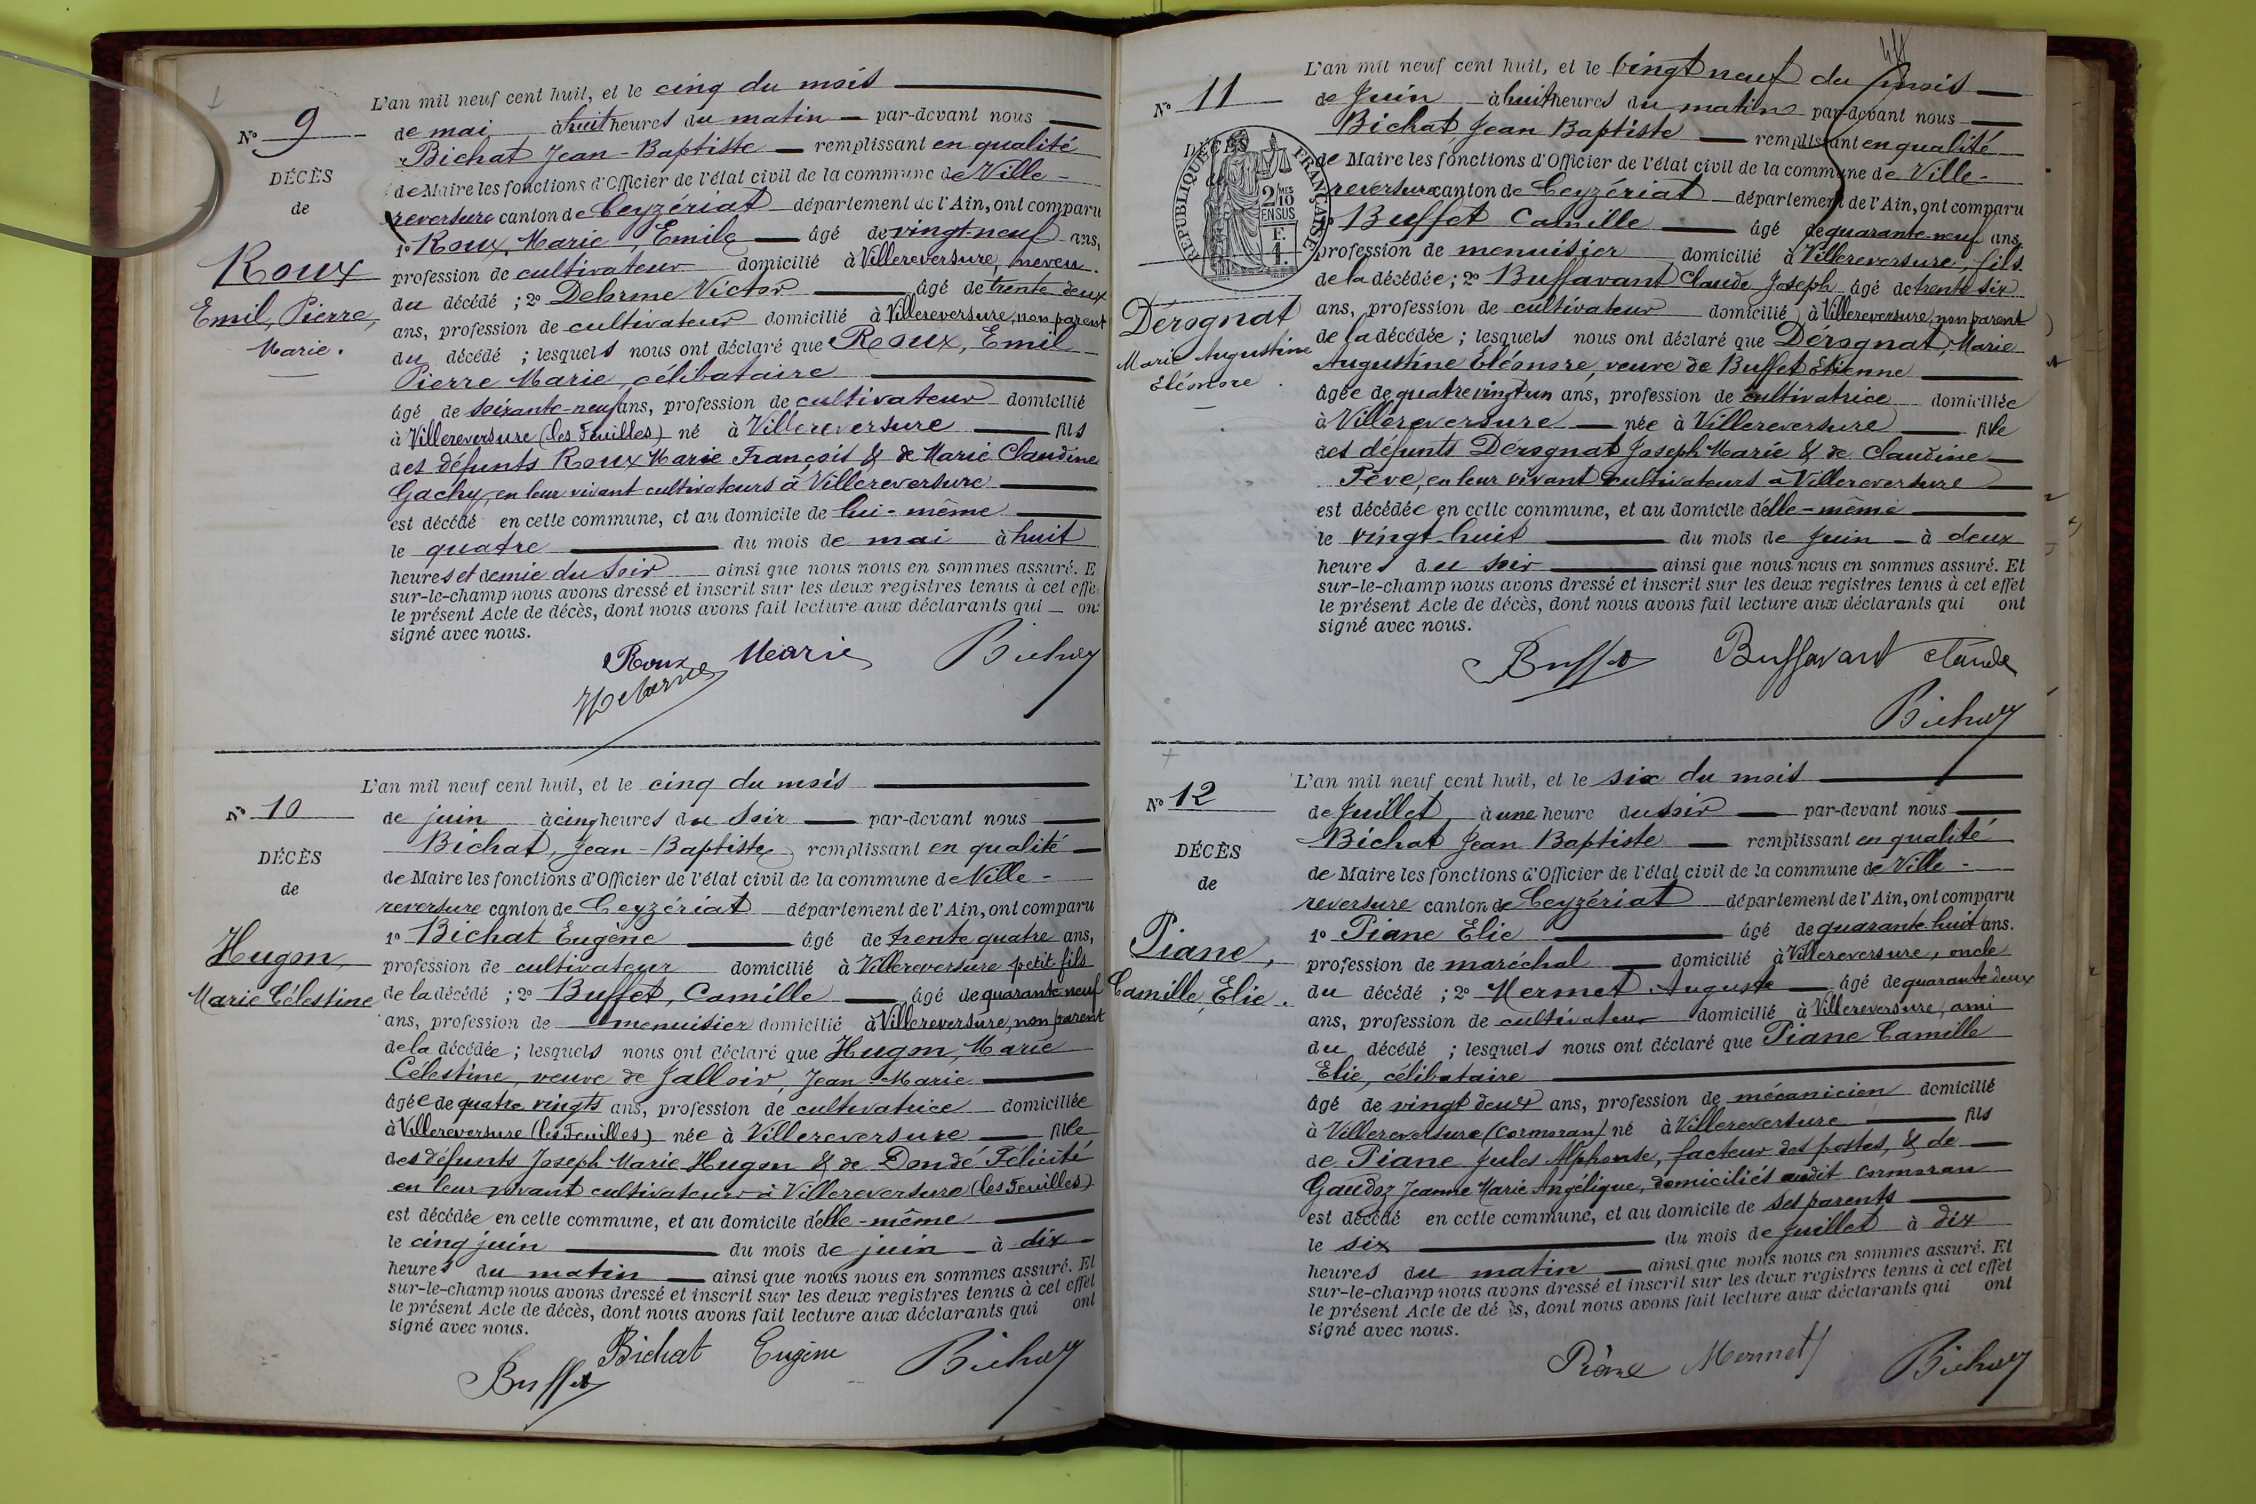 L'an mil neuf cent huit, et le cinq du mois
N° 9
de mai à huit heures du matin par-devant nous
Bichat Jean-Baptiste remplissant en qualité
DÉCÈS
de Maire les fonctions d'Officier de l'état civil de la commune de Ville-
de
reversure canton de Ceyzériat département de l'Ain, ont comparu
1° Roux, Marie, Emile âgé de vingt-neuf ans,
Roux
profession de cultivateur domicilié à Villereversure, neveu
Emil, Pierre,
du décédé ; 2° Delorme Victor âgé de trente deux
Marie.
ans, profession de cultivateur domicilié à Villereversure, non parent
du décédé ; lesquels nous ont déclaré que Roux, Emil
Pierre Marie, célibataire
âgé de soixante-neuf ans, profession de cultivateur domicilié
à Villereversure (les Feuilles) né à Villereversure fils
des défunts Roux Marie François & de Marie Claudine
Gachy, en leur vivant cultivateurs à Villereversure
est décédé en cette commune, et au domicile de lui-même
le quatre du mois de mai à huit
heures et demie du soir ainsi que nous nous en sommes assuré. E
sur-le-champ nous avons dressé et inscrit sur les deux registres tenus à cet effe
le présent Acte de décès, dont nous avons fait lecture aux déclarants qui on
signé avec nous.
Roux Marie Bichat
Delorme
L'an mil neuf cent huit, et le cinq du mois
N° 10
de juin à cinq heures du soir par-devant nous
Bichat, Jean-Baptiste remplissant en qualité
DÉCÈS
de Maire les fonctions d'Officier de l'état civil de la commune de Ville-
de
reversure canton de Ceyzériat département de l'Ain, ont comparu
1° Bichat Eugène âgé de trente quatre ans,
Hugon,
profession de cultivateur domicilié à Villereversure petit-fils
Marie Célestine
de la décédé ; 2° Buffet, Camille âgé de quarante neuf
ans, profession de menuisier domicilié à Villereversure, non parent
de la décédée ; lesquels nous ont déclaré que Hugon, Marie
Célestine, veuve de Jalloir, Jean-Marie
âgée de quatre vingts ans, profession de cultivatrice domiciliée
à Villereversure (les Feuilles) née à Villereversure fille
des défunts Joseph Marie Hugon & de Dondé Félicité
en leur vivant cultivateurs à Villereversure (les Feuilles)
est décédée en cette commune, et au domicile d'elle-même
le cinq juin du mois de juin à dix
heures du matin ainsi que nous nous en sommes assuré. Et
sur-le-champ nous avons dressé et inscrit sur les deux registres tenus à cet effet
le présent Acte de décès, dont nous avons fait lecture aux déclarants qui ont
signé avec nous.
Buffet Bichat Eugène Bichat
L'an mil neuf cent huit, et le vingt neuf du mois
N° 11
de Juin à huit heures du matin par-devant nous
Bichat Jean Baptiste remplissant en qualité
DÉCÈS
RÉPUBLIQUE FRANÇAISE
2 MES 10 EN SUS
F. 1.
de Maire les fonctions d'Officier de l'état civil de la commune de Ville-
reversure canton de Ceyzériat département de l'Ain, ont comparu
Buffet Camille âgé de quarante-neuf ans,
profession de menuisier domicilié à Villereversure, fils
de la décédée ; 2° Buffavant Claude Joseph âgé de trente six
Dérognat
ans, profession de cultivateur domicilié à Villereversure, non parent
Marie Augustine
de la décédée ; lesquels nous ont déclaré que Dérognat, Marie
Eléonore.
Augustine Eléonore, veuve de Buffet Etienne
âgée de quatre vingt un ans, profession de cultivatrice domiciliée
à Villereversure née à Villereversure fille
des défunts Dérognat Joseph Marie & de Claudine
Pève, en leur vivant cultivateurs à Villereversure
est décédée en cette commune, et au domicile d'elle-même
le vingt-huit du mois de juin à deux
heures du soir ainsi que nous nous en sommes assuré. Et
sur-le-champ nous avons dressé et inscrit sur les deux registres tenus à cet effet
le présent Acte de décès, dont nous avons fait lecture aux déclarants qui ont
signé avec nous.
Buffet Buffavant Claude
Bichat
L'an mil neuf cent huit, et le six du mois
N° 12
de Juillet à une heure du soir par-devant nous
Bichat Jean Baptiste remplissant en qualité
DÉCÈS
de Maire les fonctions d'Officier de l'état civil de la commune de Ville-
de
reversure canton de Ceyzériat département de l'Ain, ont comparu
1° Piane Elie âgé de quarante-huit ans.
Piane,
profession de maréchal domicilié à Villereversure, oncle
Camille, Elie.
du décédé ; 2° Mermet Auguste âgé de quarante deux
ans, profession de cultivateur domicilié à Villereversure, ami
du décédé ; lesquels nous ont déclaré que Piane Camille
Elie, célibataire
âgé de vingt deux ans, profession de mécanicien domicilié
à Villereversure (Cormoran) né à Villereversure fils
de Piane Jules Alphonse, facteur des postes, & de
Gaudoz Jeanne Marie Angélique, domiciliés audit Cormoran
est décédé en cette commune, et au domicile de ses parents
le six du mois de Juillet à dix
heures du matin ainsi que nous nous en sommes assuré. Et
sur-le-champ nous avons dressé et inscrit sur les deux registres tenus à cet effet
le présent Acte de dé ès, dont nous avons fait lecture aux déclarants qui ont
signé avec nous.
Piane Mermet Bichat